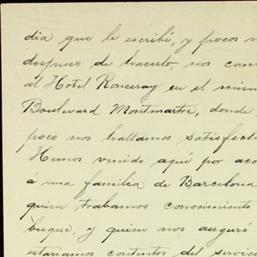 dia que le escribí, y pocos
despues de hacerlo, nos cam
al Hotel Ronceray en el mism
Boulevard Montmartre, donde
poco nos hallamos satisfect
Hemos venido aquí por aco
á una familia de Barcelona
quien trabamos conocimiento
buque, y quien nos aseguró
estaríamos contentos del servic